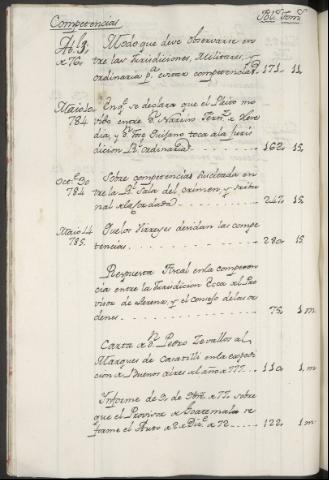 Competencias. Fol.s Tom.s
Ab.l 9. Modo que deve observarse en
de 76. tre las Jurisdiciones, Militares, y
ordinaria p.a evitar competencias. 171. 11.
Maio 10. En q.e se declara que el Pleito mo
784. bido entre D.n Narciso Fern.z de Here
dia, y D.n Jose toca ala Juris
dicion R.l ordinaria. 162. 15.
Oct.e 30 Sobre competencias suscitada en
784 tre la R.l Sala del crimen, y
de la 247. 15.
Maio 14 Que los Virreyes decidan las compe
785. tencias. 280. 15
Respuesta Fiscal en la competen
cia entre la Jurisdicion Ecca al Pro
visor de Llerena, y el Consejo de las or
denes. 75. 1 m
Carta de D.n Pedro Zevallos al
Marques de en la expedi
cion de Buenos aires al año de 777. 110. 1. m
Informe de 9 de de 77 sobre
que el Provisor de Goatemala re
forme el Auto de 2 de Dic.e de 72 122. 1 m